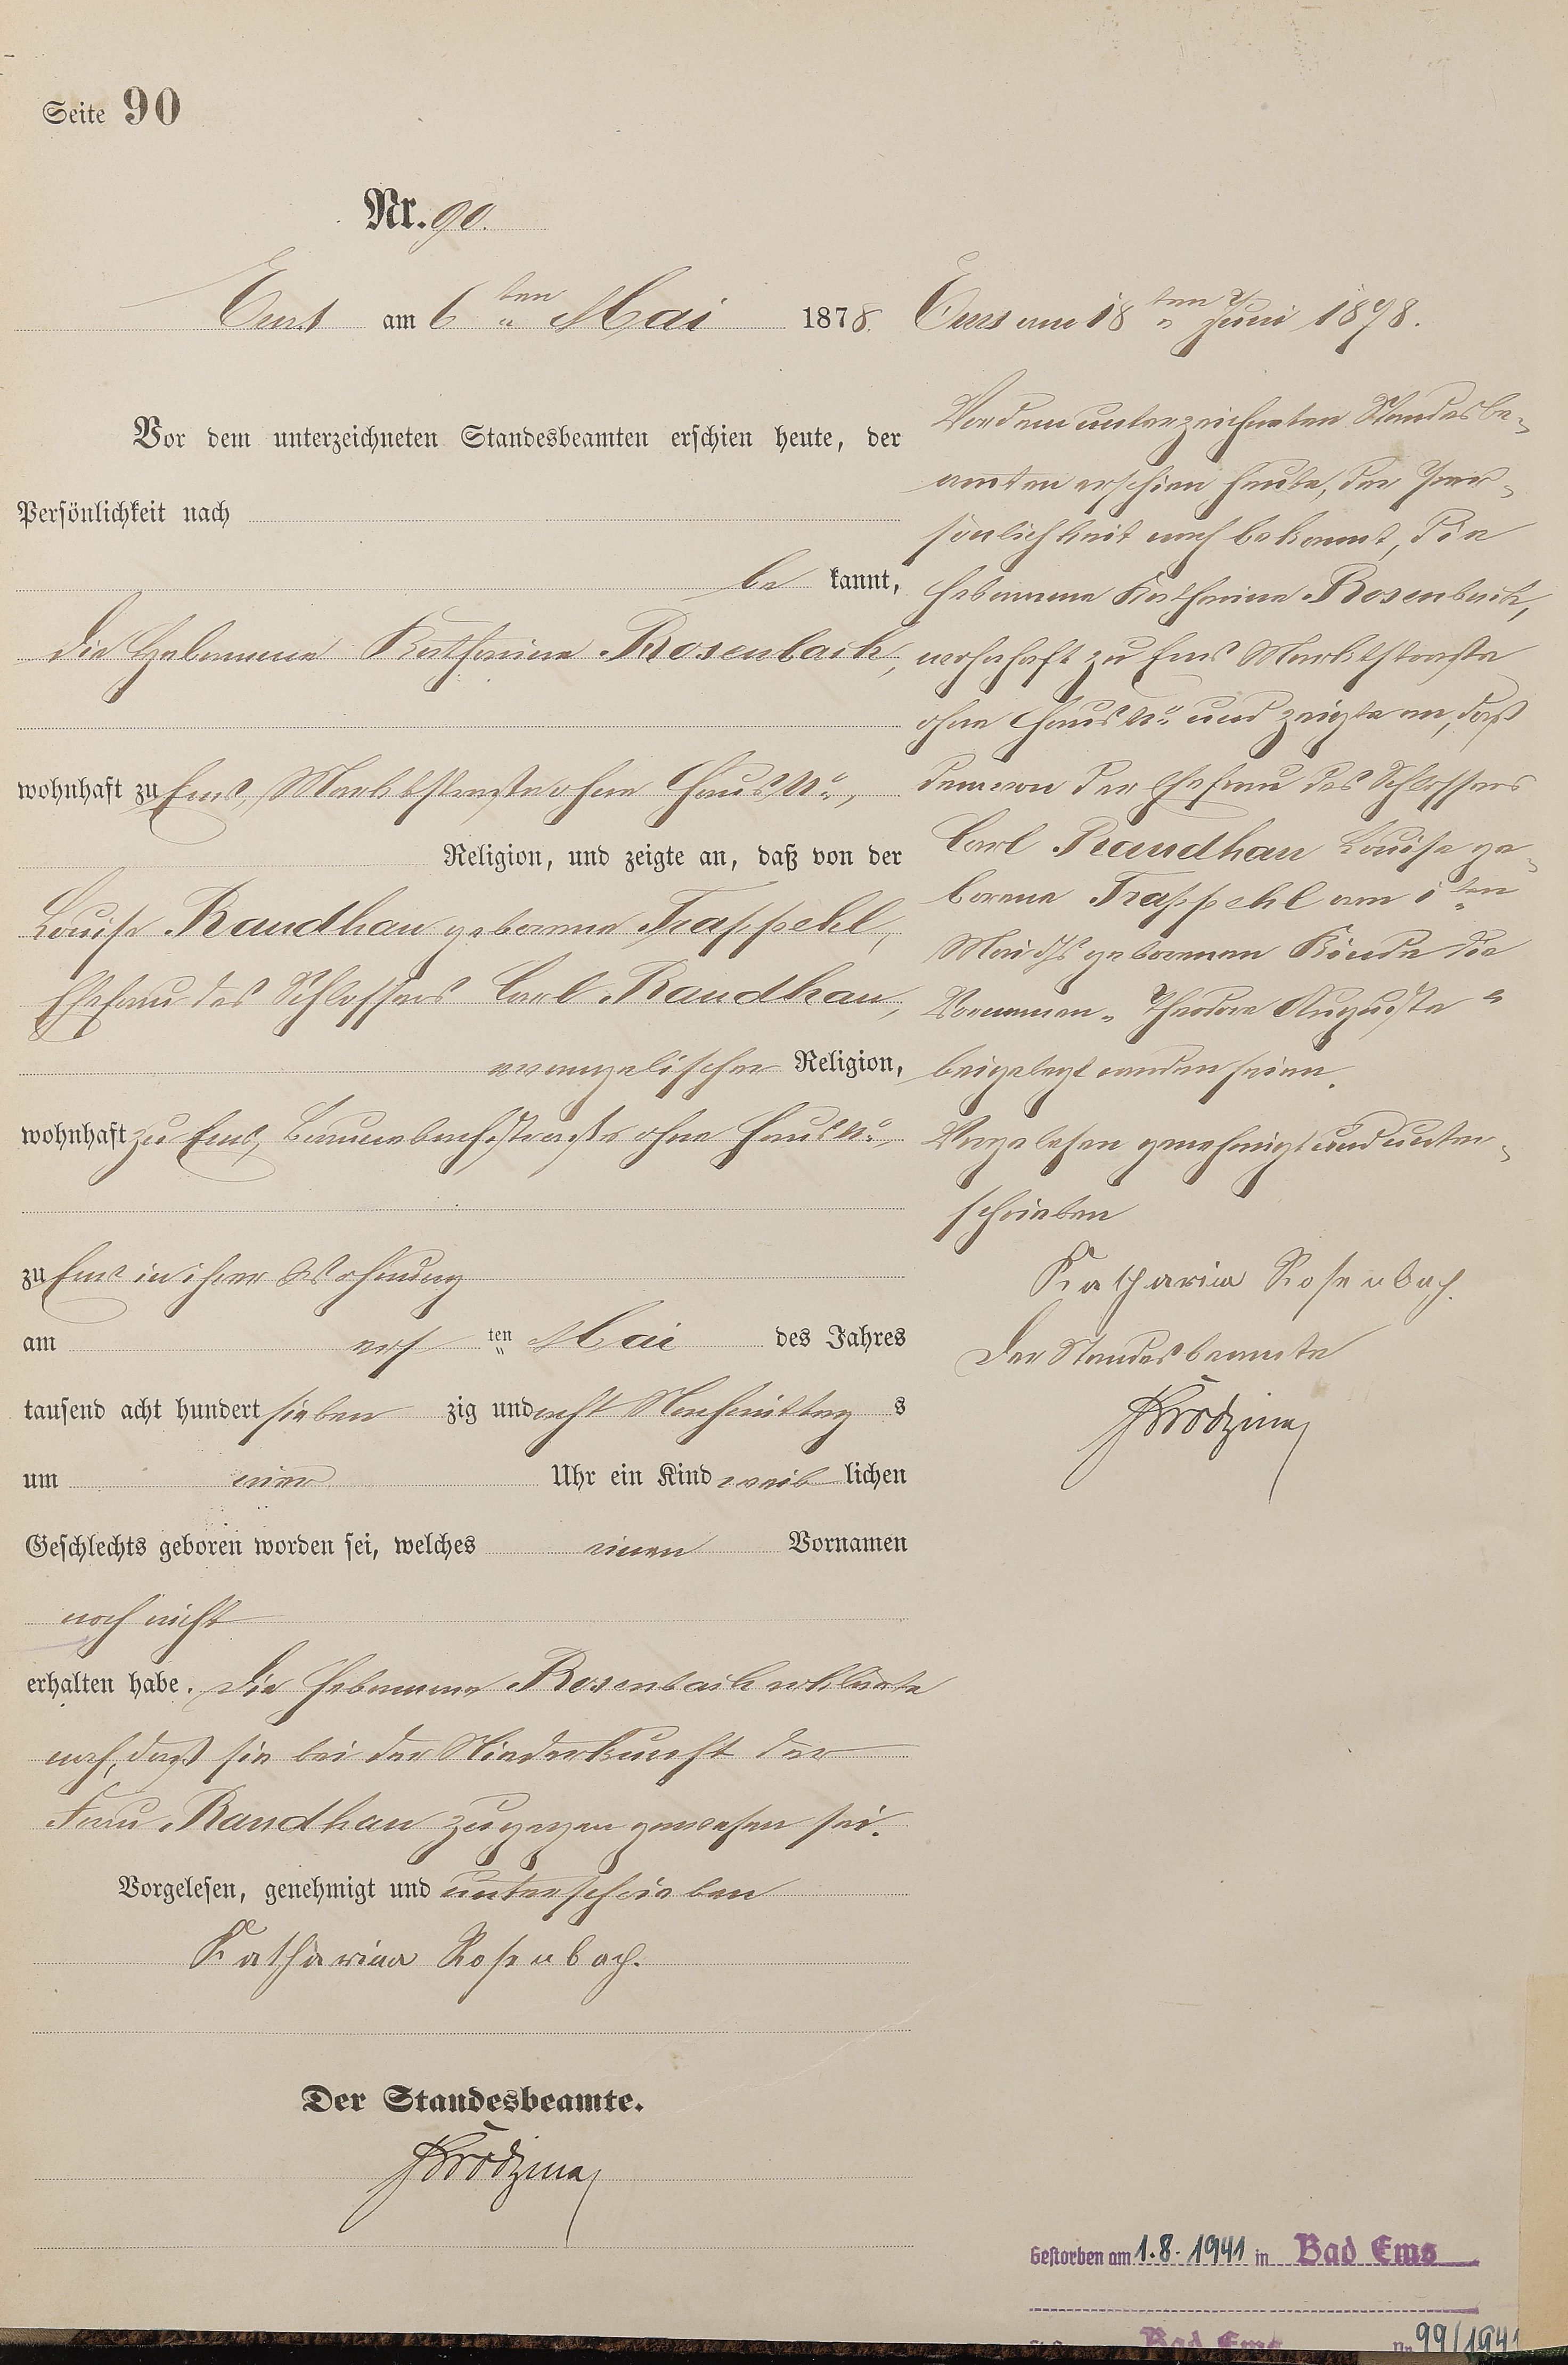 Seite 90
Nr. 90.
Ems am 6ten Mai 1878.
Vor dem unterzeichneten Standesbeamten erschien heute, der
Persönlichkeit nach
be kannt,
die Hebamme Katharina Rosenbach,
wohnhaft zu Ems, Marktstraße ohne Haus No,
Religion, und zeigte an, daß von der
Louise Raudhan geborene Trappehl,
Ehefrau des Schlossers Carl Raudhan,
evangelischer Religion,
wohnhaft zu Ems, Braunebachstraße ohne Haus No,
zu Ems in ihrer Wohnung
am ers ten Mai des Jahres
tausend acht hundert sieben zig und acht Nachmittag s
um vier Uhr ein Kind weib lichen
Geschlechts geboren worden sei, welches einen Vornamen
noch nicht
erhalten habe. Die Hebamme Rosenbach erklärte
noch, daß sie bei der Niederkunft der
Frau Raudhan zugegen gewesen sei.
Vorgelesen, genehmigt und unterschrieben
Katharina Rosenbach.
Der Standesbeamte.
Ems am 18ten Juni 1878.
Vor dem unterzeichneten Standesbe-
amten erschien heute, der Per-
sönlichkeit nach bekannt, die
Hebamme Katharina Rosenbach,
wohnhaft zu Ems Marktstraße
ohne Haus No und zeigte an, daß
dem von der Ehefrau des Schlossers
Carl Raudhan Louise ge-
borene Trappehl am 1ten
Mai d. Js geborenen Kinde die
Vornamen „Theodore Auguste"
beigelegt worden seien.
Vorgelesen genehmigt und unter-
schrieben
Katharina Rosenbach.
Der Standesbeamte
Gestorben am 1.8.1941 in Bad Ems
Bad Ems Nr. 99/1941